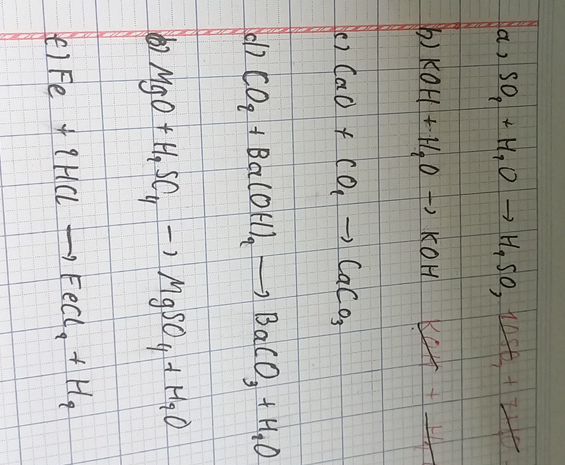 a, SO₂ + H₂O → H₂SO₃
b) KOH + H₂O → KOH
c) CaO + CO₂ → CaCO₃
d) CO₂ + Ba(OH)₂ → BaCO₃ + H₂O
b) MgO + H₂SO₄ → MgSO₄ + H₂O
f) Fe + 2HCl → FeCl₂ + H₂